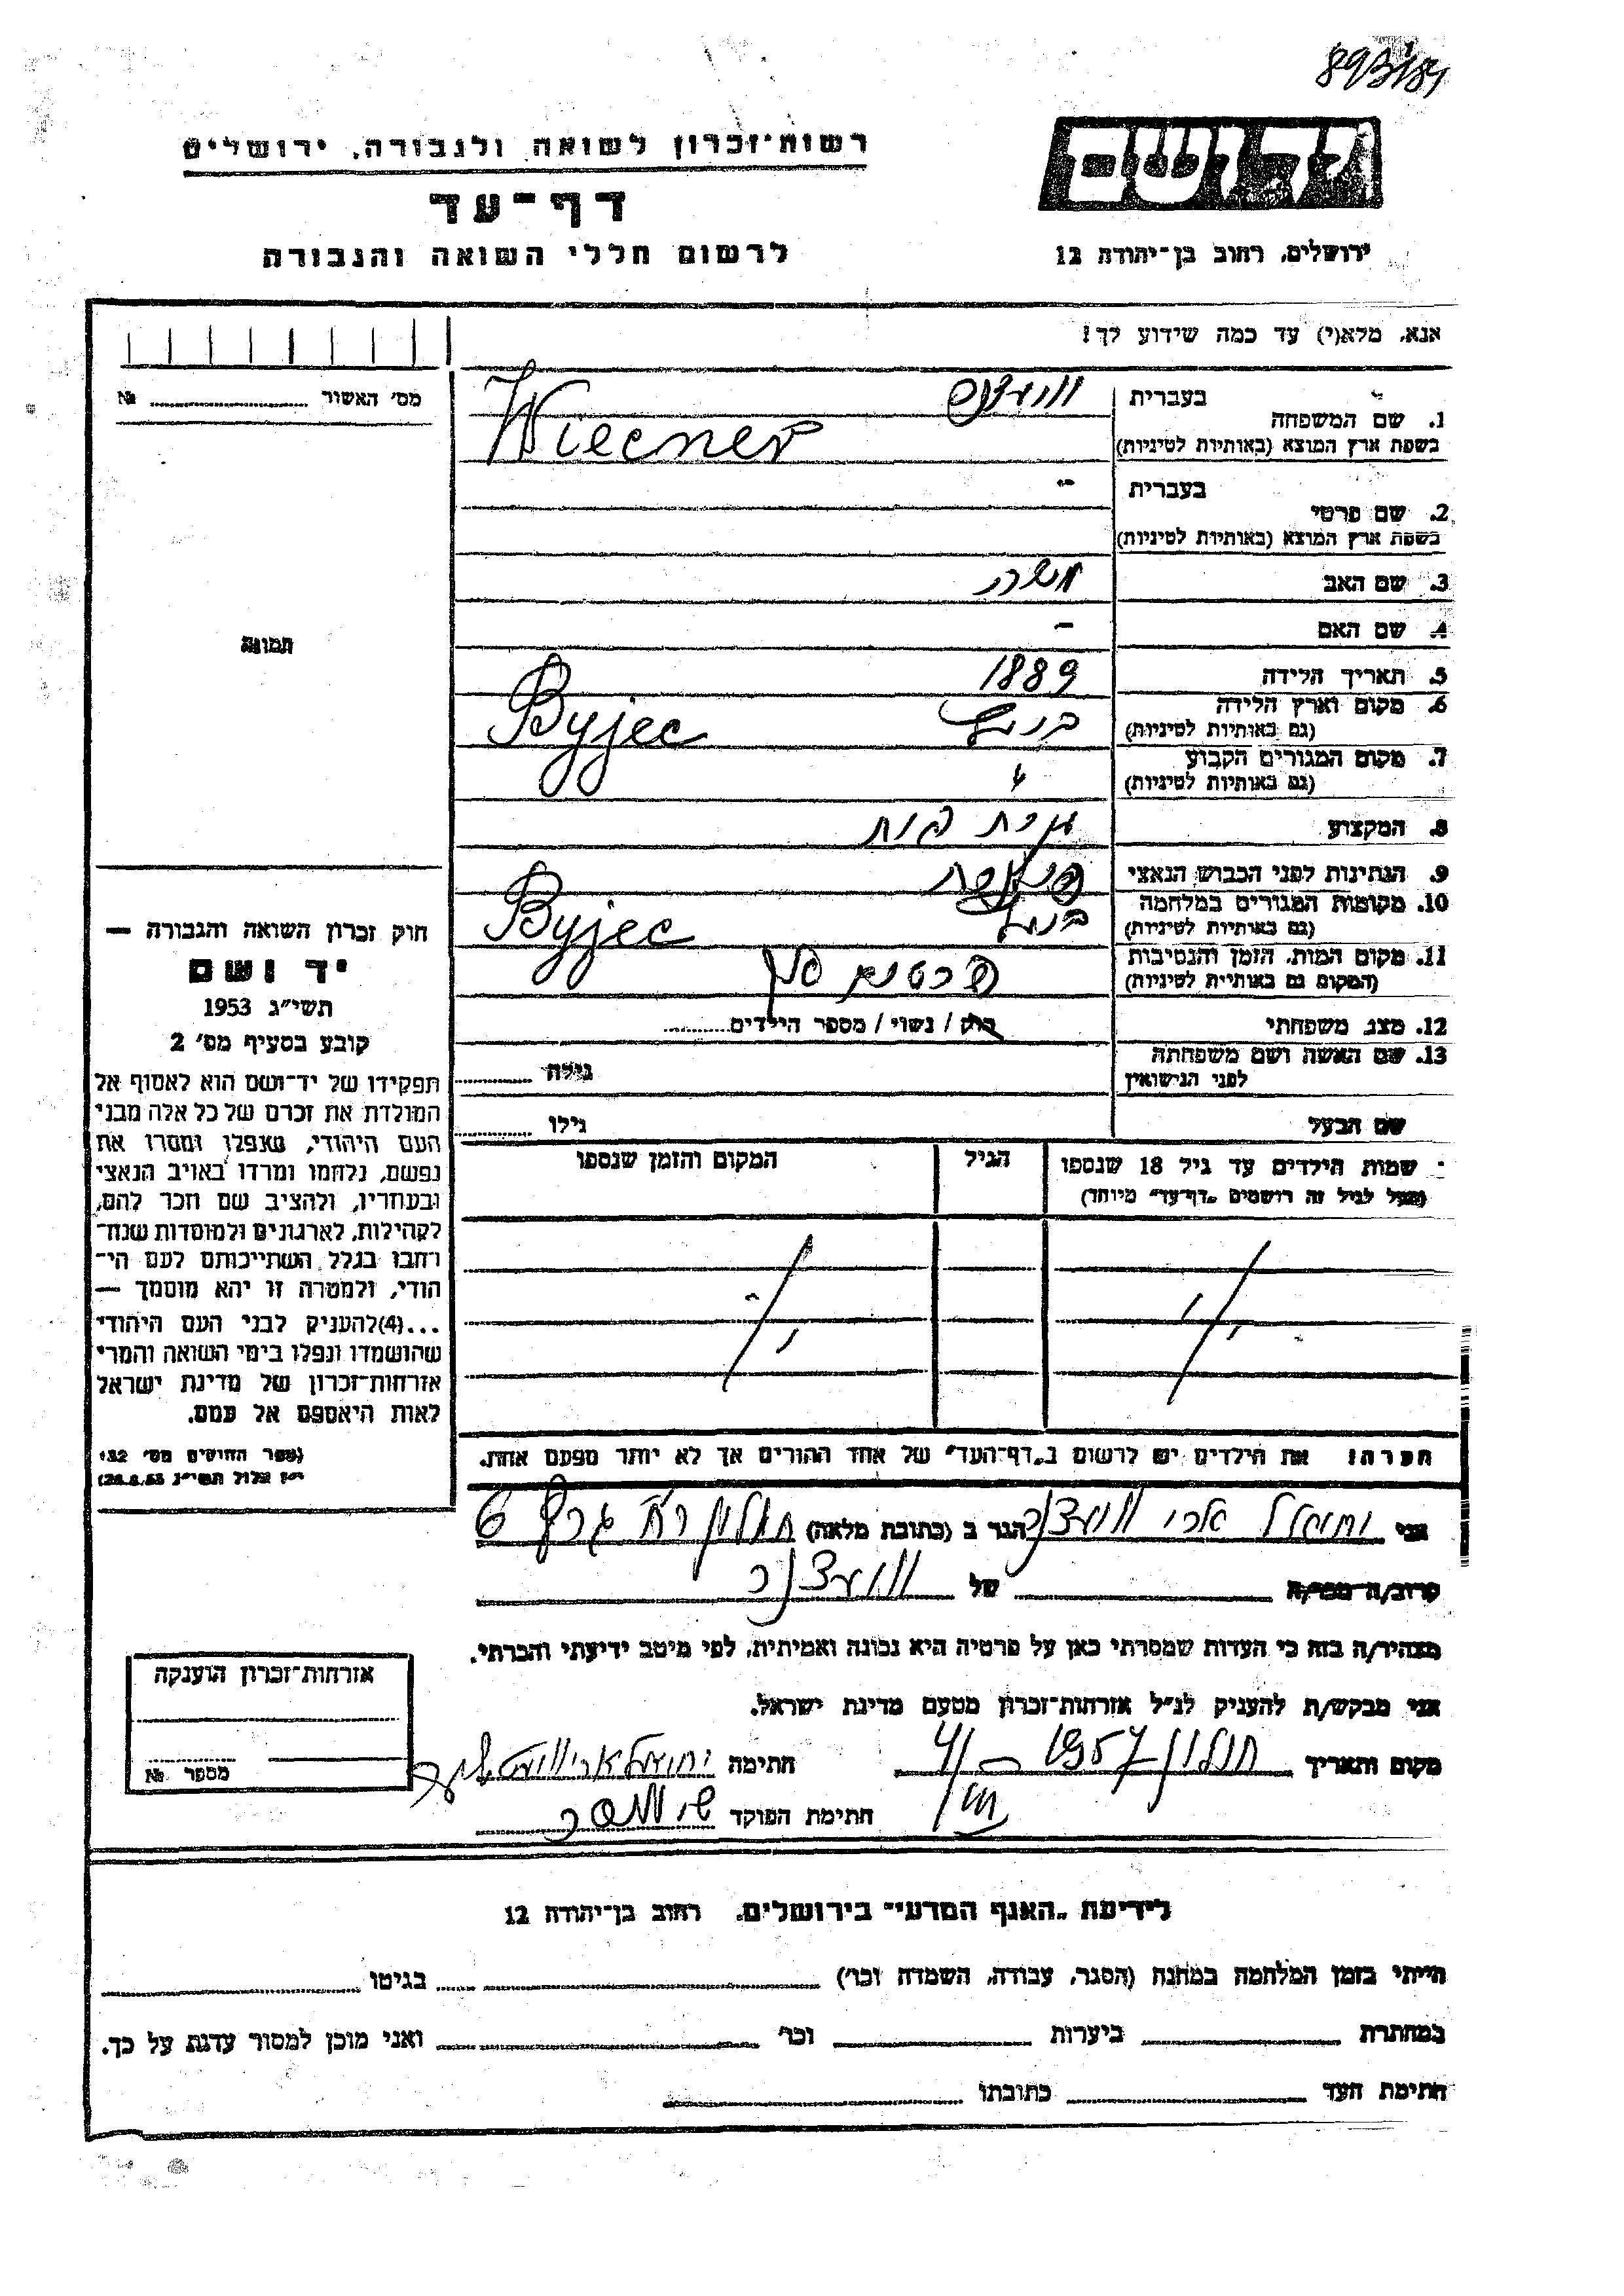 893/181
רשות־זכרון לשואה ולגבורה, ירושלים
דף־עד
לרשום חללי השואה והגבורה
יד ושם
ירושלים, רחוב בן־יהודה 12
אנא, מלא(י) עד כמה שידוע לך!
מס' האשור № 
1. שם המשפחה
בעברית
בשפת ארץ המוצא (באותיות לטיניות) Wiecner
2. שם פרטי
בעברית -
בשפת ארץ המוצא (באותיות לטיניות)
3. שם האב משה
4. שם האם -
5. תאריך הלידה 1889
6. מקום וארץ הלידה
(גם באותיות לטיניות) Byjec
7. מקום המגורים הקבוע
(גם באותיות לטיניות) "
8. המקצוע עקרת בית
9. הנתינות לפני הכבוש הנאצי
10. מקומות המגורים במלחמה
(גם באותיות לטיניות) Byjec
11. מקום המות, הזמן והנסיבות
(המקום גם באותיות לטיניות)
12. מצב משפחתי רוק / נשוי / מספר הילדים
13. שם האשה ושם משפחתה
לפני הנישואין גילה
שם הבעל גילו
שמות הילדים עד גיל 18 שנספו
(מעל לגיל זה רושמים „דף־עד" מיוחד)
הגיל
המקום והזמן שנספו
הערה: את הילדים יש לרשום ב„דף־העד" של אחד ההורים אך לא יותר מפעם אחת.
תמונה
חוק זכרון השואה והגבורה —
יד ושם
תשי"ג 1953
קובע בסעיף מס' 2
תפקידו של יד־ושם הוא לאסוף אל
המולדת את זכרם של כל אלה מבני
העם היהודי, שנפלו ומסרו את
נפשם, נלחמו ומרדו באויב הנאצי
ובעוזריו, ולהציב שם וזכר להם,
לקהילות, לארגונים ולמוסדות שנח־
רבו בגלל השתייכותם לעם הי־
הודי, ולמטרה זו יהא מוסמך —
...(4)להעניק לבני העם היהודי
שהושמדו ונפלו בימי השואה והמרי
אזרחות־זכרון של מדינת ישראל
לאות היאספם אל עמם.
(ספר החוקים מס' 132
י"ז אלול תשי"ג 28.8.53)
אני יחיאל ארי הגר ב (כתובת מלאה) חולון 6
קרוב/ה מכר/ה של
מצהיר/ה בזה כי העדות שמסרתי כאן על פרטיה היא נכונה ואמיתית, לפי מיטב ידיעתי והכרתי.
אני מבקש/ת להעניק לנ"ל אזרחות־זכרון מטעם מדינת ישראל.
מקום ותאריך חולון 1957 חתימה
חתימת הפוקד
אזרחות־זכרון הוענקה
מספר №
לידיעת „האגף המדעי" בירושלים, רחוב בן־יהודה 12
הייתי בזמן המלחמה במחנה (הסגר, עבודה, השמדה וכו') בגיטו
במחתרת ביערות וכו' ואני מוכן למסור עדות על כך.
חתימת העד כתובתו